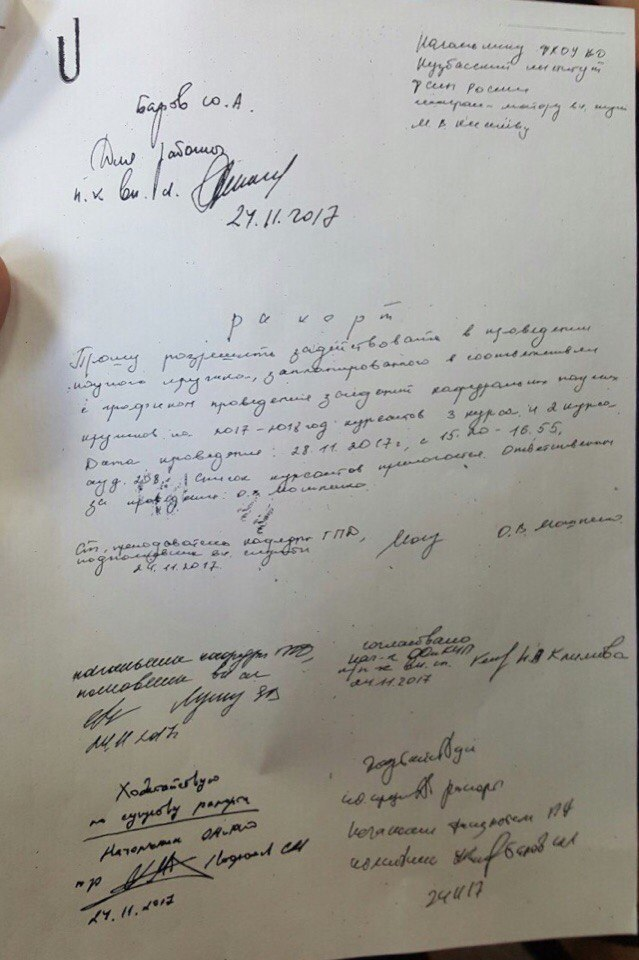 Начальнику ФКОУ ВО
Кузбасский институт
ФСИН России
генерал-майору вн. службы
Баров Ю.А.
Для работы
п-к вн. сл.
24.11.2017
рапорт
Прошу разрешить задействовать в проведении
научного кружка, запланированного в соответствии
с графиком проведения заседаний кафедральных научных
кружков на 2017-2018 год курсантов 3 курса и 2 курса.
Дата проведения: 28.11.2017г. с 15.20-16.55,
ауд. 208. Список курсантов прилагается. Ответственный
за проведение: О.В.
Ст. преподаватель кафедры ГПД,
подполковник вн. службы О.В.
24.11.2017.
начальник кафедры ГПД,
полковник вн сл
24.11.2017г
согласовано
п/п-к вн. сл. Н.В Климова
24.11.2017
Ходатайствую
по существу рапорта
Начальник
п-р
24.11.2017
Ходатайствую
по существу рапорта
начальник
полковник Баров
241117